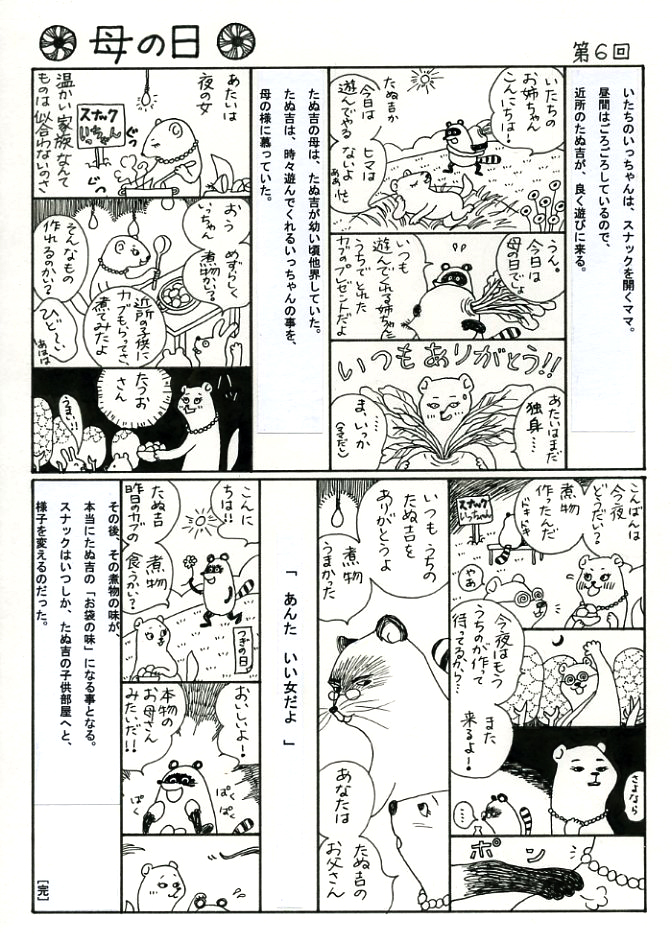 母の日
第6回
いたちのいっちゃんは、スナックを開くママ。
昼間はごろごろしているので、
近所のたぬ吉が、良く遊びに来る。
いたちの
お姉ちゃん
こんにちは!
たぬ吉か
今日は
遊んでやる
ヒマは
ないよ
ああ、忙
うん。
今日は
母の日でしょ
いつも
遊んでくれる姉ちゃんに
うちでとれた
カブのプレゼントだよ
いつもありがとう!!
あたいはまだ
独身…
ま、いっか
(まだし)
たぬ吉の母は、たぬ吉が幼い頃他界していた。
たぬ吉は、時々遊んでくれるいっちゃんの事を、
母の様に慕っていた。
あたいは
夜の女
スナック
いっちゃん
ぐつ
ぐつ
温かい家族なんて
ものは似合わないのさ
おう
いっちゃん
めずらしく
煮物かい?
そんなもの
作れるのかい?
近所の子供に
カブもらってさ、
煮てみたよ
ひど〜い
あはは
たつお
さん
うまい!!
こんばんは
今夜
どうだい?
煮物
作ったんだ
ドキドキ
スナック
いっちゃん
やあ
今夜はもう
うちのが作って
待ってるから…
また
来るよ!
さよなら
…
ポン
いつもうちの
たぬ吉を
ありがとうよ
煮物
うまかった
あなたは
たぬ吉の
お父さん
「あんた いい女だよ」
こんに
ちは!!
たぬ吉
昨日のカブの
煮物
食うかい?
つぎの日
おいしいよ!
本物の
お母さん
みたいだ!!
ぱく
ぱく
ぱく
その後、その煮物の味が、
本当にたぬ吉の「お袋の味」になる事となる。
スナックはいつしか、たぬ吉の子供部屋へと、
様子を変えるのだった。
[完]